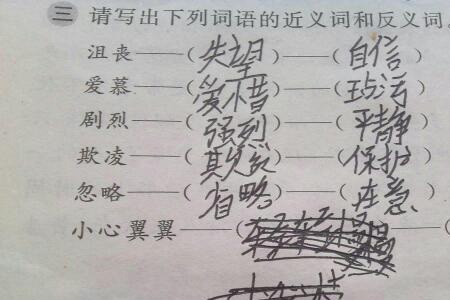 三 请写出下列词语的近义词和反义词。
沮丧——(失望)——(自信)
爱慕——(爱惜)——(玷污)
剧烈——(强烈)——(平静)
欺凌——(欺负)——(保护)
忽略——(省略)——( )
小心翼翼——( )——(